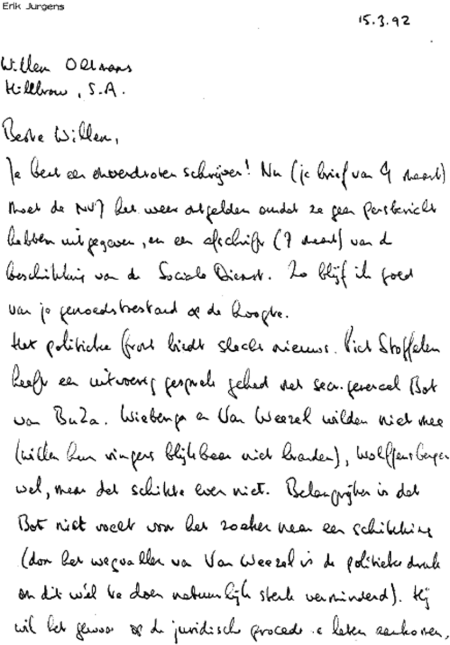 Erik Jurgens
15.3.92
Willem Oltmans
Hillbrow, S.A.
Beste Willem,
Je bent een onverdroten schrijver! Nu (je brief van 4 maart)
moet de NVJ het weer ontgelden omdat ze geen persbericht
hebben uitgegeven, en een afschrift (7 maart) van de
beschikking van de Sociale Dienst. Zo blijf ik goed
van je gemoedstoestand op de hoogte.
Het politieke front biedt slecht nieuws. Piet Stoffelen
heeft een uitvoerig gesprek gehad met secr. generaal Bot
van BuZa. Wiebenga en Van Weezel wilden niet mee
(willen hun vingers blijkbaar niet branden), Wolffensperger
wel, maar dat schikte even niet. Belangrijker is dat
Bot niet voelt voor het zoeken naar een schikking
(door het wegvallen van Van Weezel is de politieke druk
om dit wél te doen natuurlijk sterk verminderd). Hij
wil het gewoon op de juridische procedure laten aankomen,